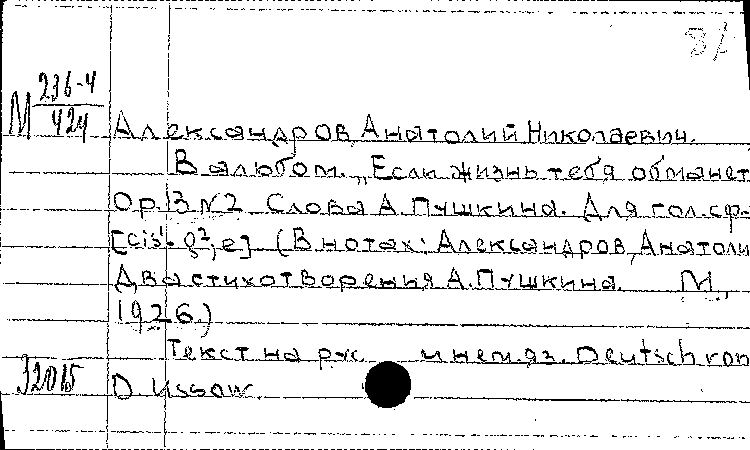 8/
М 236-4
424
Александров, Анатолий Николаевич.
В альбом. „Если жизнь тебя обманет
Op. 13 №2 Слова А. Пушкина. Для гол. с ф-
[cis¹- g², e] (В нотах: Александров, Анатоли
Два стихотворения А. Пушкина. М.,
1926.)
Текст на рус. и нем. яз. Deutsch von
D. Ussow.